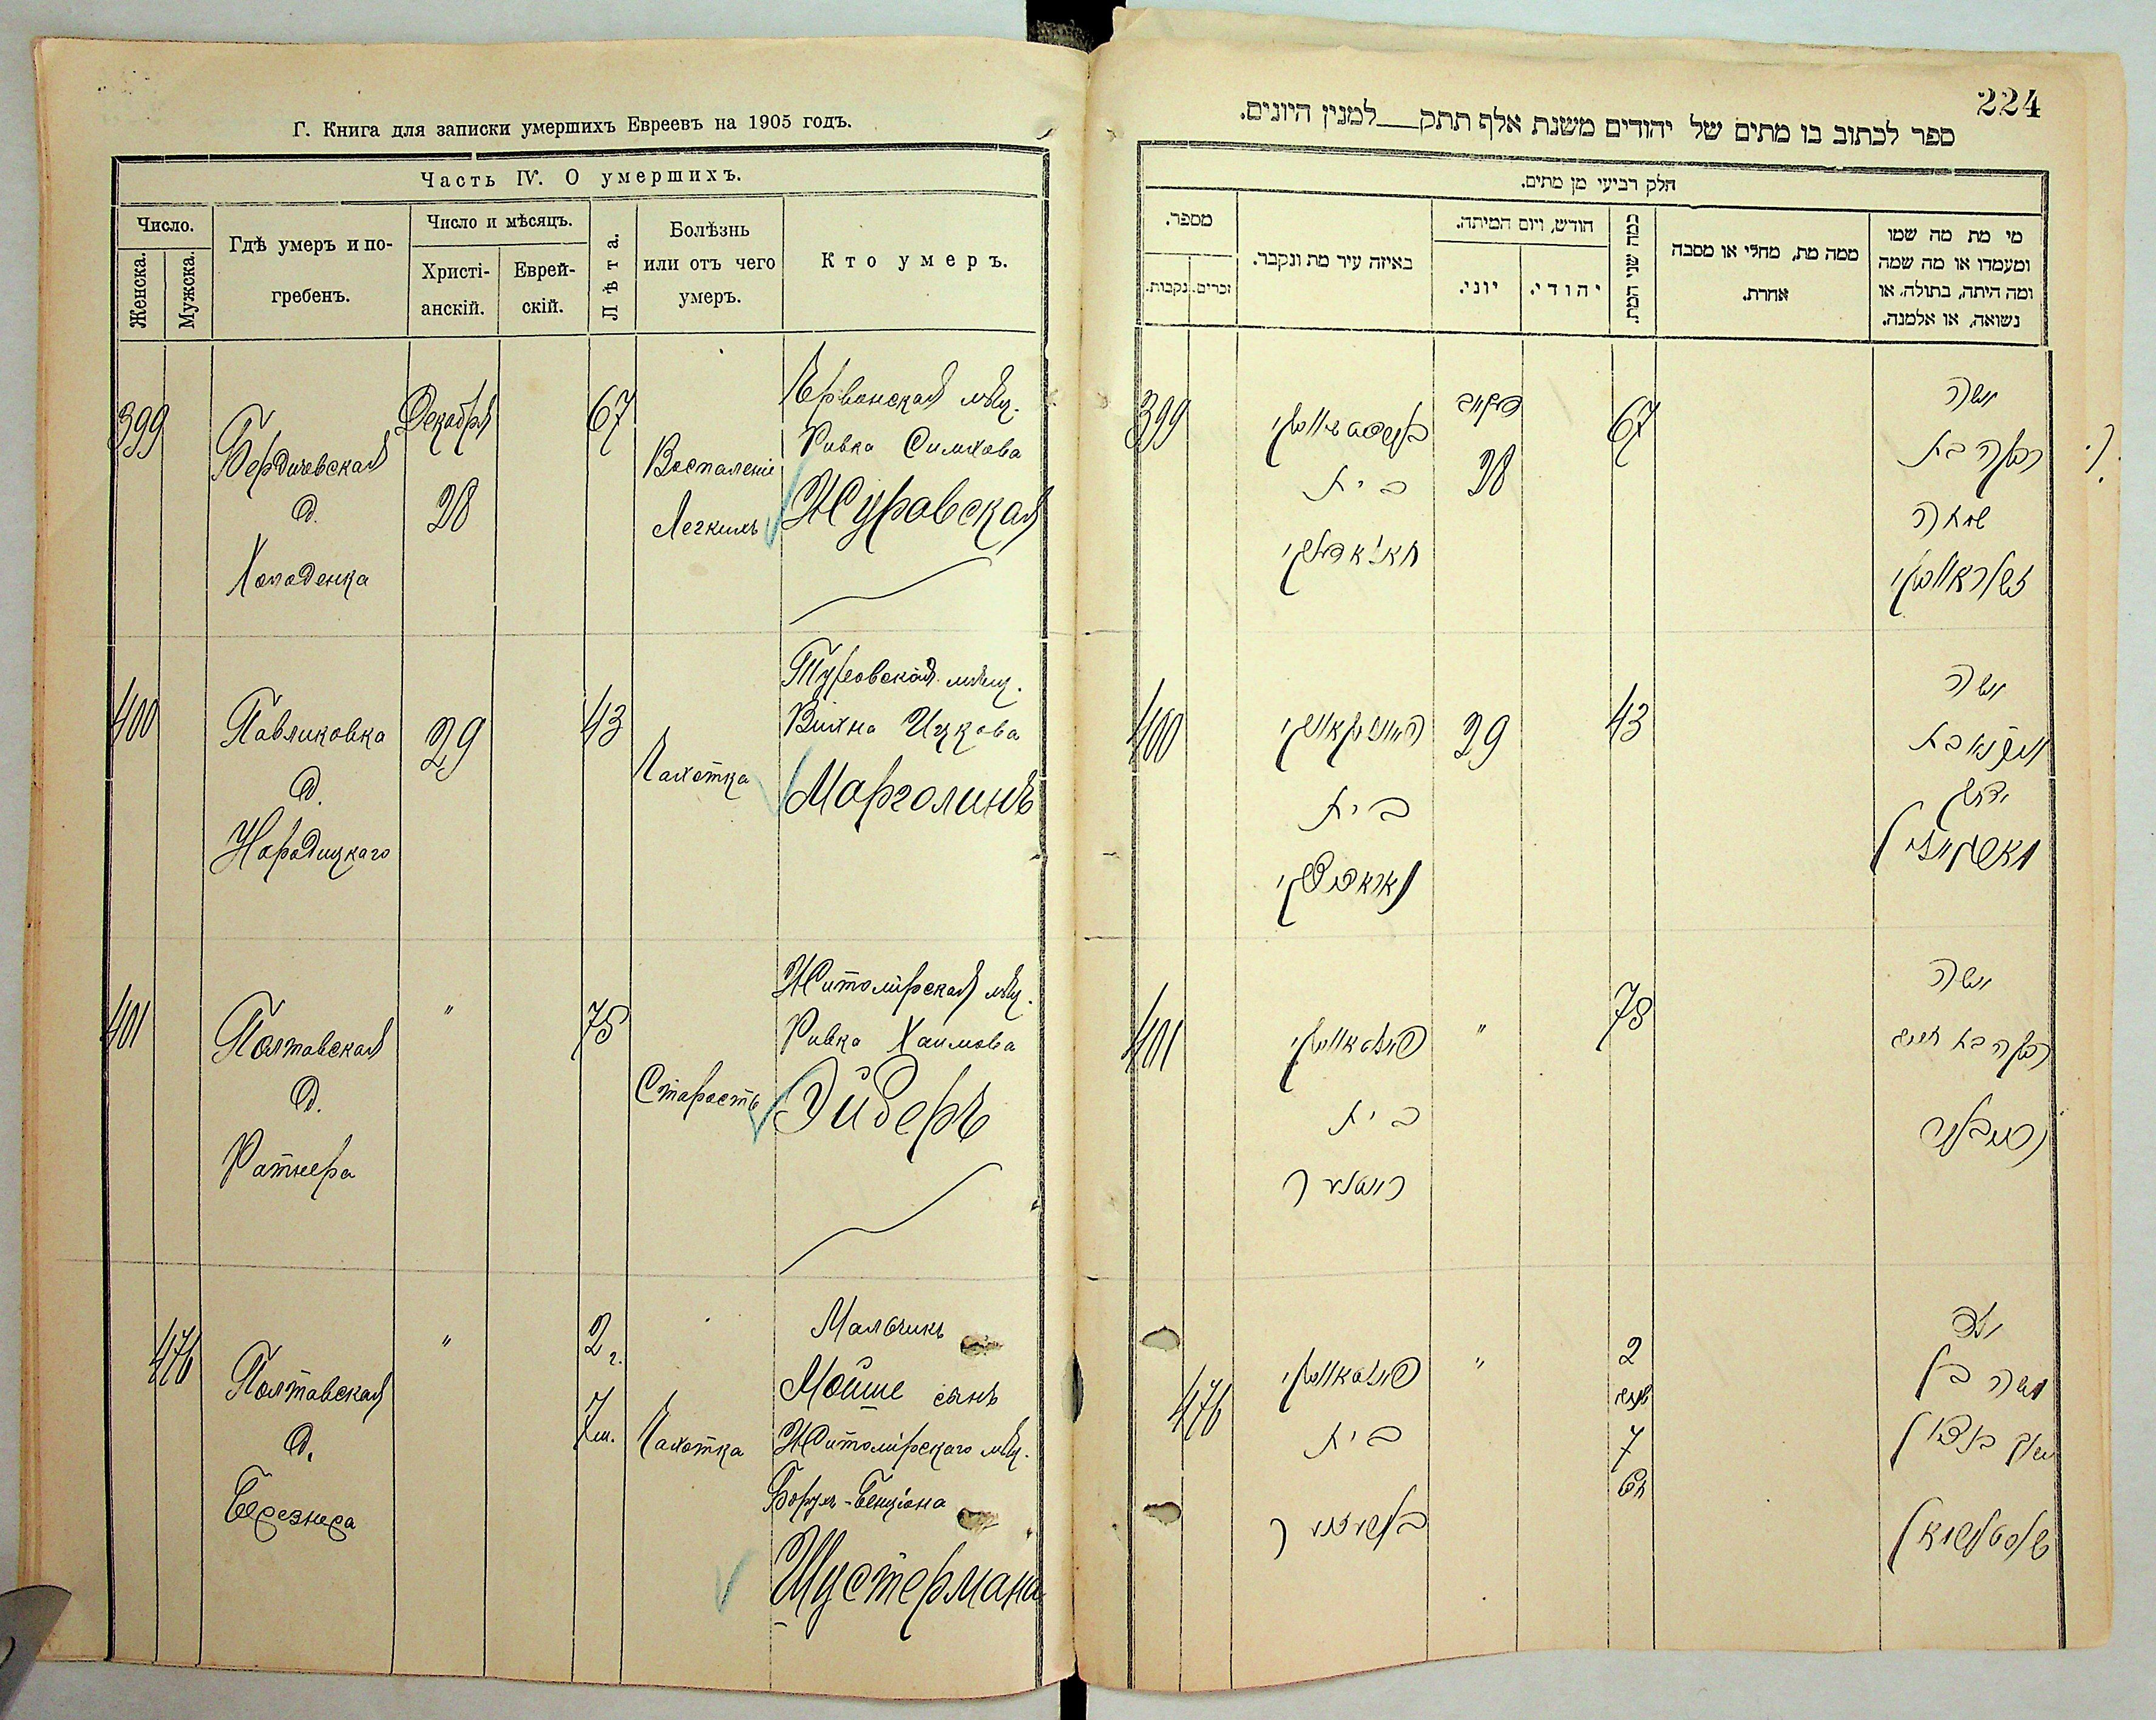 Г. Книга для записки умершихъ Евреевъ на 1905 годъ.
Часть IV. О умершихъ.
Число.
Женска.
Мужска.
Гдѣ умеръ и по-
гребенъ.
Число и мѣсяцъ.
Христі-
анскій.
Еврей-
скій.
Лѣта.
Болѣзнь
или отъ чего
умеръ.
Кто умеръ.
399
Бердичевская
д.
Холоденка
Декабря
28
67
Воспаленіе
Легкихъ
мѣщ.
Ривка Симхова
Журавская
400
Павликовка
д.
Народицкаго
29
43
Чахотка
Туровская мѣщ.
Вихна Ицкова
Марголинъ
401
Полтавская
д.
Ратнера
"
75
Старость
Житомірская мѣщ.
Ривка Хаимова
Эйдеръ
476
Полтавская
д.
Березнера
"
2 г.
7 м.
Чахотка
Мальчикъ
Мойше сынъ
Житомірскаго мѣщ.
Борух-Бенціона
Шустермана
224
ספר לכתוב בו מתים של יהודים משנת אלף תתק למנין היונים.
חלק רביעי מן מתים.
מספר.
נקבות.
זכרים.
באיזה עיר מת ונקבר.
חודש, ויום המיתה.
יוני.
יהודי.
כמה שני המת.
ממה מת, מחלי או מסבה
אחרת.
מי מת מה שמו
ומעמדו או מה שמה
ומה היתה, בתולה, או
נשואה, או אלמנה.
399
בית
28
67
אשה
רבקה בת
שמחה
400
בית
29
43
אשה
401
בית
"
75
אשה
רבקה בת חיים
476
בית
"
2
7
ילד
משה בן